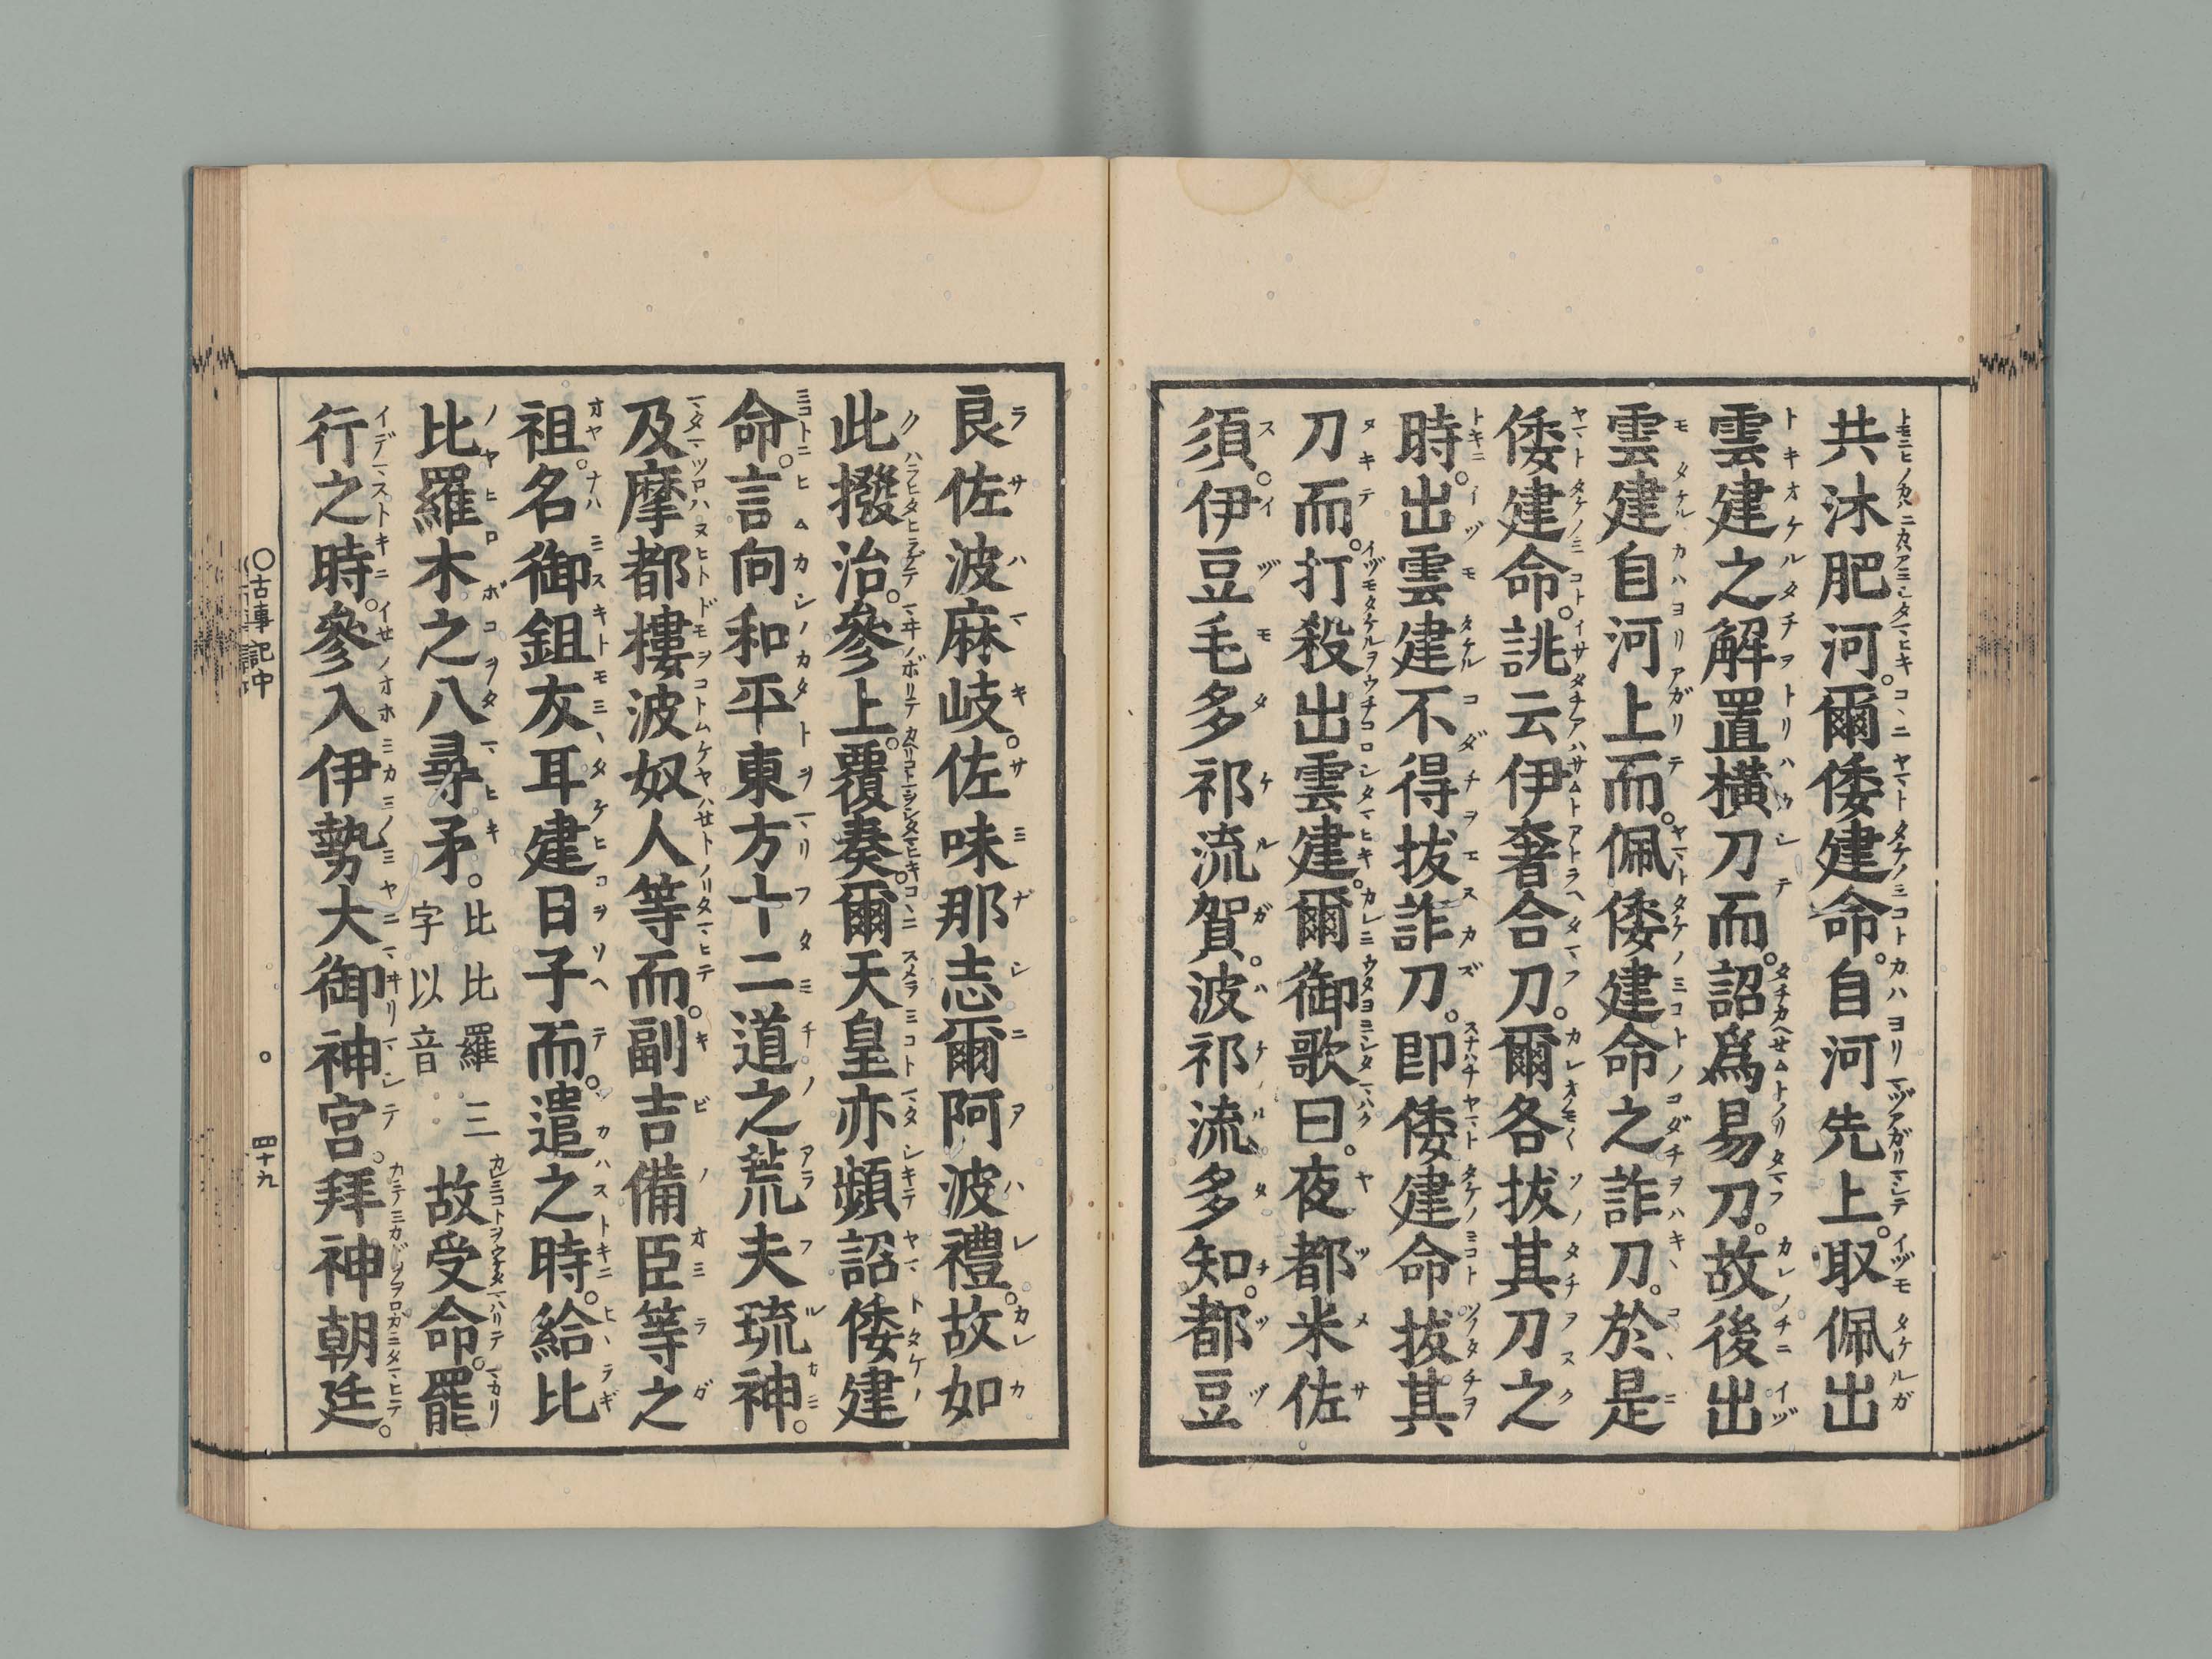 共沐肥河。爾倭建命。自河先上。取佩出
雲建之解置横刀而。詔爲易刀。故後出
雲建自河上而。佩倭建命之詐刀。於是
倭建命。誂云伊奢合刀。爾各拔其刀之
時。出雲建不得拔詐刀。即倭建命拔其
刀而。打殺出雲建。爾御歌曰。夜都米佐
須。伊豆毛多祁流賀。波祁流多知。都豆
良佐波麻岐。佐味那志爾阿波禮。故如
此撥治。參上。覆奏。爾天皇亦頻詔倭建
命。言向和平東方十二道之荒夫琉神。
及摩都樓波奴人等而。副吉備臣等之
祖。名御鉏友耳建日子而。遣之時。給比
比羅木之八尋矛。比比羅三字以音 故受命。罷
行之時。參入伊勢大御神宮。拜神朝廷。
〇古事記中 四十九